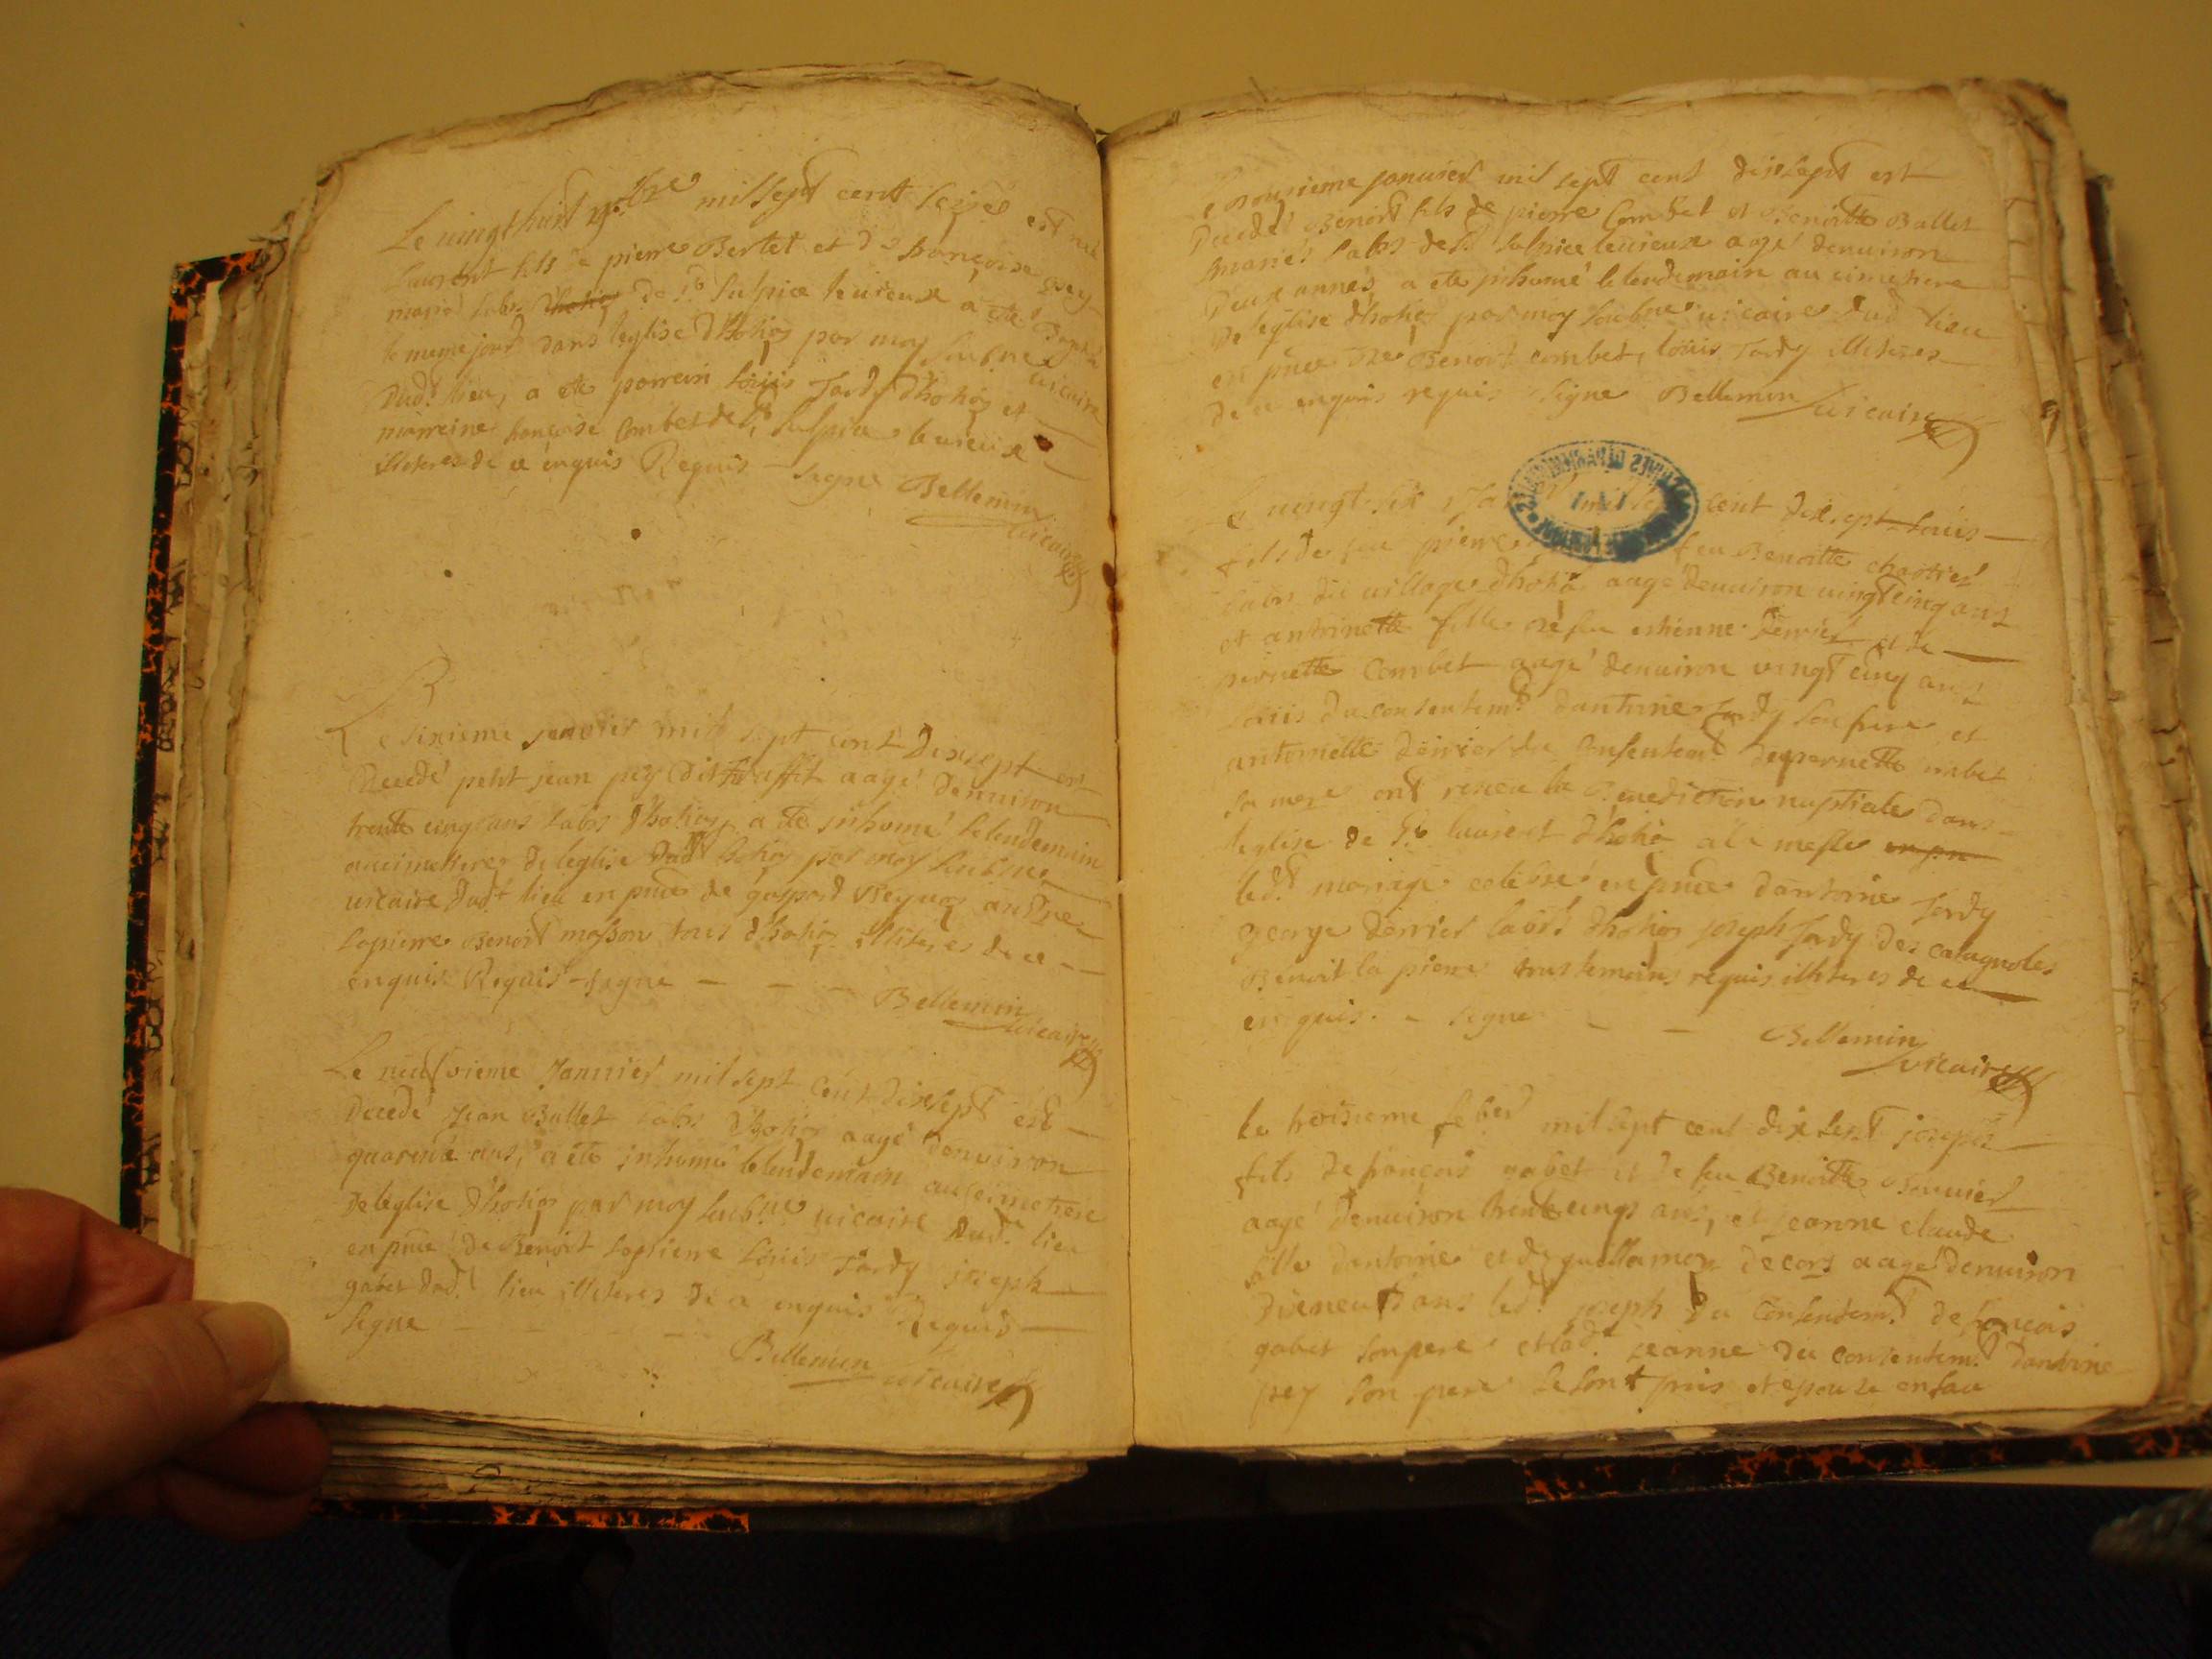 Le vingt huit 9bre mil sept cent seize est né
Laurent fils de pierre Bertet et de françoise pey
mariés labs de st Sulpice le vieux a ete Baptisé
le meme jour dans leglise d'hotio par moy soubne vicaire
dud. lieu, a ete parrein Loüis Tardy d'hotio et
marreine françoise Combet de st Sulpice le vieux
illiteres de ce enquis Requis signe Bellemin
vicaire
Le sixieme janvier mil sept cent dixsept est
decedé petit jean pey dit aagé denuiron
trente cinq ans labs d'hotio, a ete inhumé le lendemain
au cimettiere de leglise dud. hotio par moy soubne
vicaire dud. lieu en pnce de gaspard andre
lapierre Benoit masson tous d'hotio illiteres de ce
enquis Requis signe
Bellemin
vicaire
Le neufvieme Janvier mil sept cent dixsept est
decedé Jean Ballet labs d'hotio aagé denuiron
quarente ans, a ete inhumé le lendemain au cimettiere
de leglise d'hotio par moy soubne vicaire dud. lieu
en pnce de Benoit lapierre Loüis Tardy joseph
gabet dud. lieu illiteres de ce enquis Requis
signe
Bellemin vicaire
janvier mil sept cent dixsept est
decedé Benoit fils de pierre Combet et Benoitte Ballet
mariés labs de st Sulpice le vieux aagé denuiron
deux annés, a ete inhumé le lendemain au cimetiere
de leglise d'hotio par moy soubne vicaire dud. lieu
en pnce de Benoit combet, loüis Tardy illiteres
de ce enquis requis signe Bellemin vicaire
Le vingt six cent dixsept Louis
fils de feu pierre feu Benoitte
labs du village d'hotio aagé denuiron vingt cinq ans
et antoinette fille de feu estienne Derrier et de
pernette Combet aagé denuiron vingt cinq ans
Loüis du consentemt dantoine Tardy son frere et
antoinette derrier du consentemt de pernette combet
sa mere ont receu la Benediction nuptiale dans
leglise de st laurent d'hotio a la messe en pn
led. mariage celebré en pnce dantoine Tardy
george derrier labs d'hotio joseph Tardy des catagnoles
Benoit la pierre tous temoins requis illiteres de ce
enquis. signe
Bellemin
vicaire
Le troisieme feber mil sept cent dix sept joseph
fils de françois gabet et de feu Benoitte
aagé denuiron trente cinq ans, et jeanne claude
fille dantoine et de de cors aagé denuiron
dixneuf ans led. joseph du consentemt de françois
gabet son pere et lad. jeanne du consentemt dantoine
pey son pere se sont pris et epousé en face